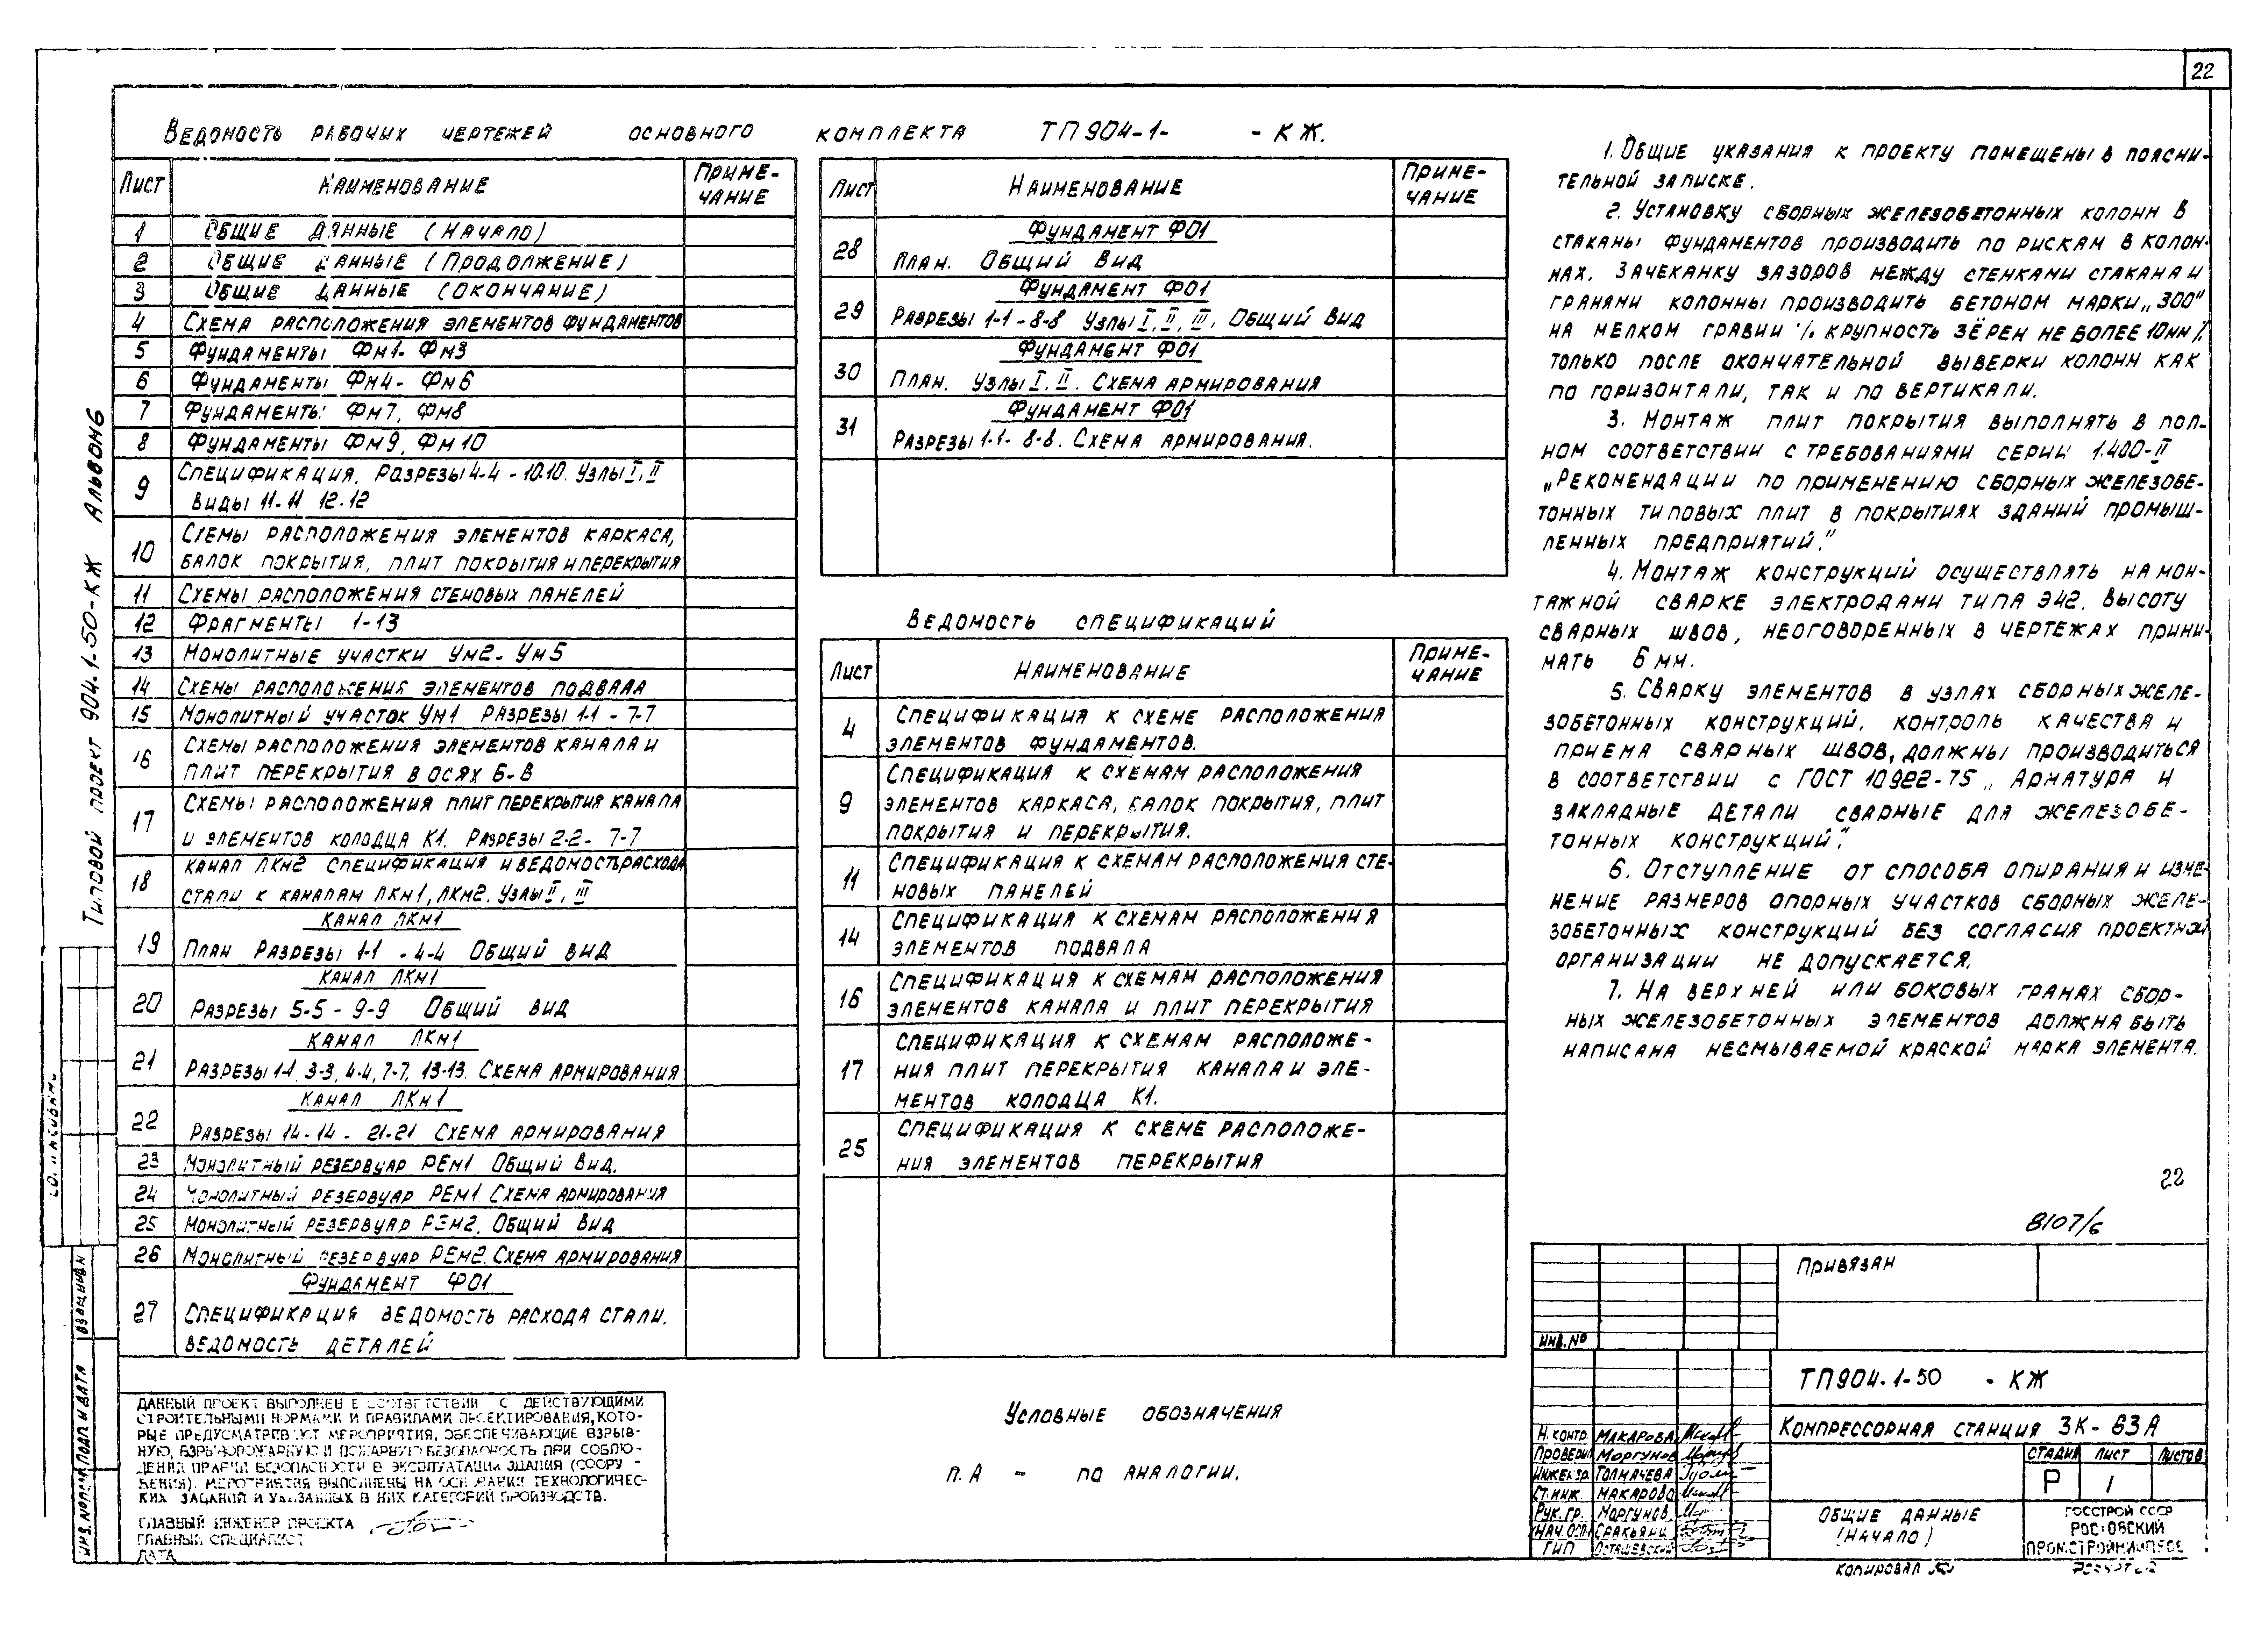 22
Ведомость рабочих чертежей основного комплекта ТП904-1- - КЖ.
Лист Наименование Приме-
чание
1 Общие данные (начало)
2 Общие данные (продолжение)
3 Общие данные (окончание)
4 Схема расположения элементов фундаментов
5 Фундаменты Фм1- Фм3
6 Фундаменты Фм4- Фм6
7 Фундаменты Фм7, Фм8
8 Фундаменты Фм9, Фм10
9 Спецификация. Разрезы 4-4 - 10.10. Узлы I, II
Виды 11-11 12-12
10 Схемы расположения элементов каркаса,
балок покрытия, плит покрытия и перекрытия
11 Схемы расположения стеновых панелей
12 Фрагменты 1-13
13 Монолитные участки Ум2- Ум5
14 Схемы расположения элементов подвала
15 Монолитный участок Ум1 Разрезы 1-1 - 7-7
16 Схемы расположения элементов канала и
плит перекрытия в осях Б-В
17 Схемы расположения плит перекрытия канала
и элементов колодца К1. Разрезы 2-2- 7-7
18 Канал ЛКм2 Спецификация и ведомость расхода
стали к каналам ЛКм1, ЛКм2. Узлы II, III
Канал ЛКм1
19 План Разрезы 1-1 - 4-4 Общий вид
Канал ЛКм1
20 Разрезы 5-5 - 9-9 Общий вид
Канал ЛКм1
21 Разрезы 1-1, 3-3, 4-4, 7-7, 13-13. Схема армирования
Канал ЛКм1
22 Разрезы 14-14 - 21-21 Схема армирования
23 Монолитный резервуар РЕм1 Общий вид.
24 Монолитный резервуар РЕм1. Схема армирования
25 Монолитный резервуар РЕм2. Общий вид
26 Монолитный резервуар РЕм2. Схема армирования
Фундамент Ф01
27 Спецификация ведомость расхода стали.
Ведомость деталей
Лист Наименование Приме-
чание
Фундамент Ф01
28 План. Общий вид
Фундамент Ф01
29 Разрезы 1-1 - 8-8 Узлы I, II, III. Общий вид
Фундамент Ф01
30 План. Узлы I. II. Схема армирования
Фундамент Ф01
31 Разрезы 1-1- 8-8. Схема армирования.
Ведомость спецификаций
Лист Наименование Приме-
чание
4 Спецификация к схеме расположения
элементов фундаментов.
9 Спецификация к схемам расположения
элементов каркаса, балок покрытия, плит
покрытия и перекрытия.
11 Спецификация к схемам расположения сте-
новых панелей
14 Спецификация к схемам расположения
элементов подвала
16 Спецификация к схемам расположения
элементов канала и плит перекрытия
17 Спецификация к схемам расположе-
ния плит перекрытия канала и эле-
ментов колодца К1.
25 Спецификация к схеме расположе-
ния элементов перекрытия
1. Общие указания к проекту помещены в поясни-
тельной записке.
2. Установку сборных железобетонных колонн в
стаканы фундаментов производить по рискам в колон-
нах. Зачеканку зазоров между стенками стакана и
гранями колонны производить бетоном марки „300"
на мелком гравии /крупность зёрен не более 10мм/,
только после окончательной выверки колонн как
по горизонтали, так и по вертикали.
3. Монтаж плит покрытия выполнять в пол-
ном соответствии с требованиями серии 1.400-II
„Рекомендации по применению сборных железобе-
тонных типовых плит в покрытиях зданий промыш-
ленных предприятий."
4. Монтаж конструкций осуществлять на мон-
тажной сварке электродами типа Э42. Высоту
сварных швов, неоговоренных в чертежах прини-
мать 6мм.
5. Сварку элементов в узлах сборных желе-
зобетонных конструкций, контроль качества и
приема сварных швов, должны производиться
в соответствии с ГОСТ 10922-75 „Арматура и
закладные детали сварные для железобе-
тонных конструкций."
6. Отступление от способа опирания и изме-
нение размеров опорных участков сборных желе-
зобетонных конструкций без согласия проектной
организации не допускается.
7. На верхней или боковых гранах сбор-
ных железобетонных элементов должна быть
написана несмываемой краской марка элемента.
22
8107/6
Данный проект выполнен в соответствии с действующими
строительными нормами и правилами проектирования, кото-
рые предусматривают мероприятия, обеспечивающие взрыв-
ную, взрывопожарную и пожарную безопасность при соблю-
дении правил безопасности в эксплуатации здания (соору-
жения). Мероприятия выполнены на основании технологичес-
ких заданий и указанных в них категорий производств.
Главный инженер проекта
Главный специалист
Дата
Условные обозначения
п.А - по аналогии.
Привязан
Инв.№
ТП904-1-50 - КЖ
Компрессорная станция 3К-63А
Н.контр. Макарова
Проверил Моргунов
Инженер Толмачева
Ст.инж. Макарова
Рук.гр. Моргунов
Нач.осп Сракьянц
ГИП Осташевский
Стадия Лист Листов
Р 1
Общие данные
(начало)
Госстрой СССР
Ростовский
Промстройниипроект
Копировал
Формат
Типовой проект 904-1-50-КЖ Альбом 6
Согласовано
Взам.инв.№
Подп. и дата
Инв.№подл